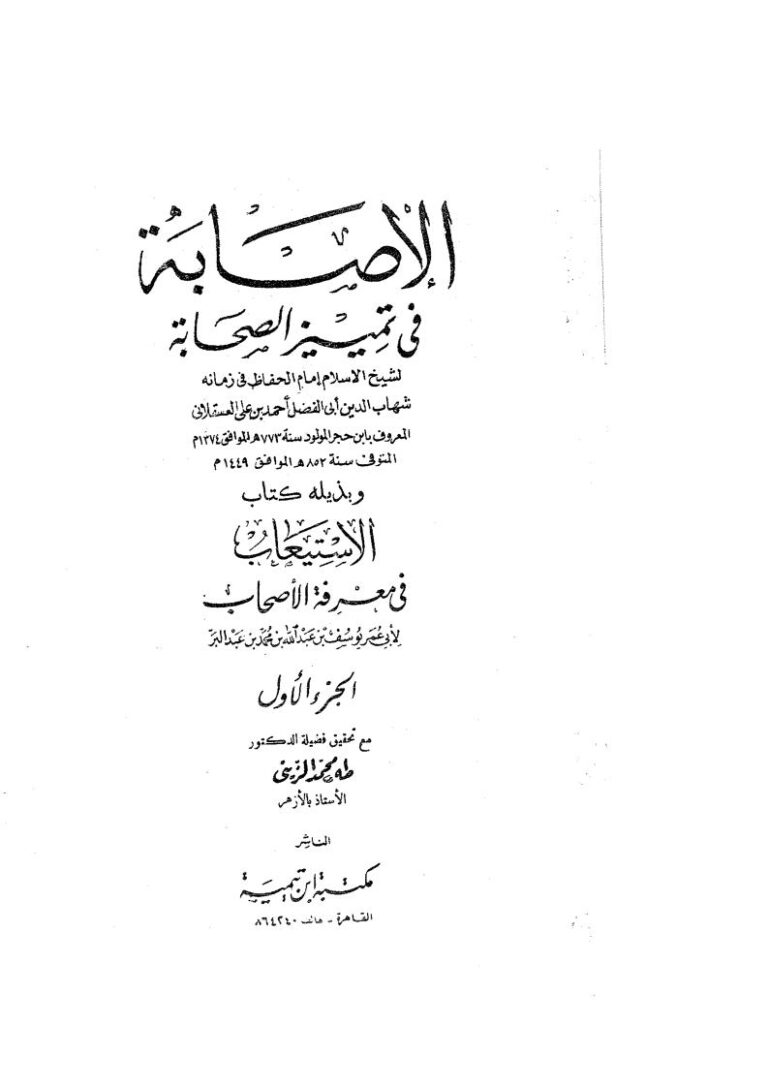 الإصابة
في تمييز الصحابة
لشيخ الاسلام إمام الحفاظ في زمانه
شهاب الدين أبي الفضل أحمد بن علي العسقلاني
المعروف بابن حجر المولود سنة ٧٧٣ هـ الموافق ١٣٧٤م
المتوفى سنة ٨٥٢ هـ الموافق ١٤٤٩ م
وبذيله كتاب
الاستيعاب
في معرفة الأصحاب
لأبي عمر يوسف بن عبد الله بن محمد بن عبد البر
الجزء الأول
مع تحقيق فضيلة الدكتور
طه محمد الزيني
الأستاذ بالأزهر
الناشر
مكتبة ابن تيمية
القاهرة - هاتف ٨٦٤٢٤٠